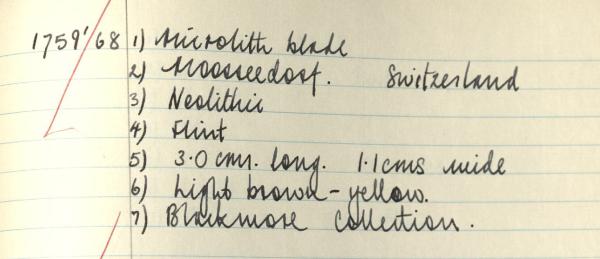 1759'68 1) Microlith blade
2) Moosseedorf. Switzerland
3) Neolithic
4) Flint
5) 3.0 cms. long. 1.1 cms wide
6) Light brown - yellow.
7) Blackmore Collection.